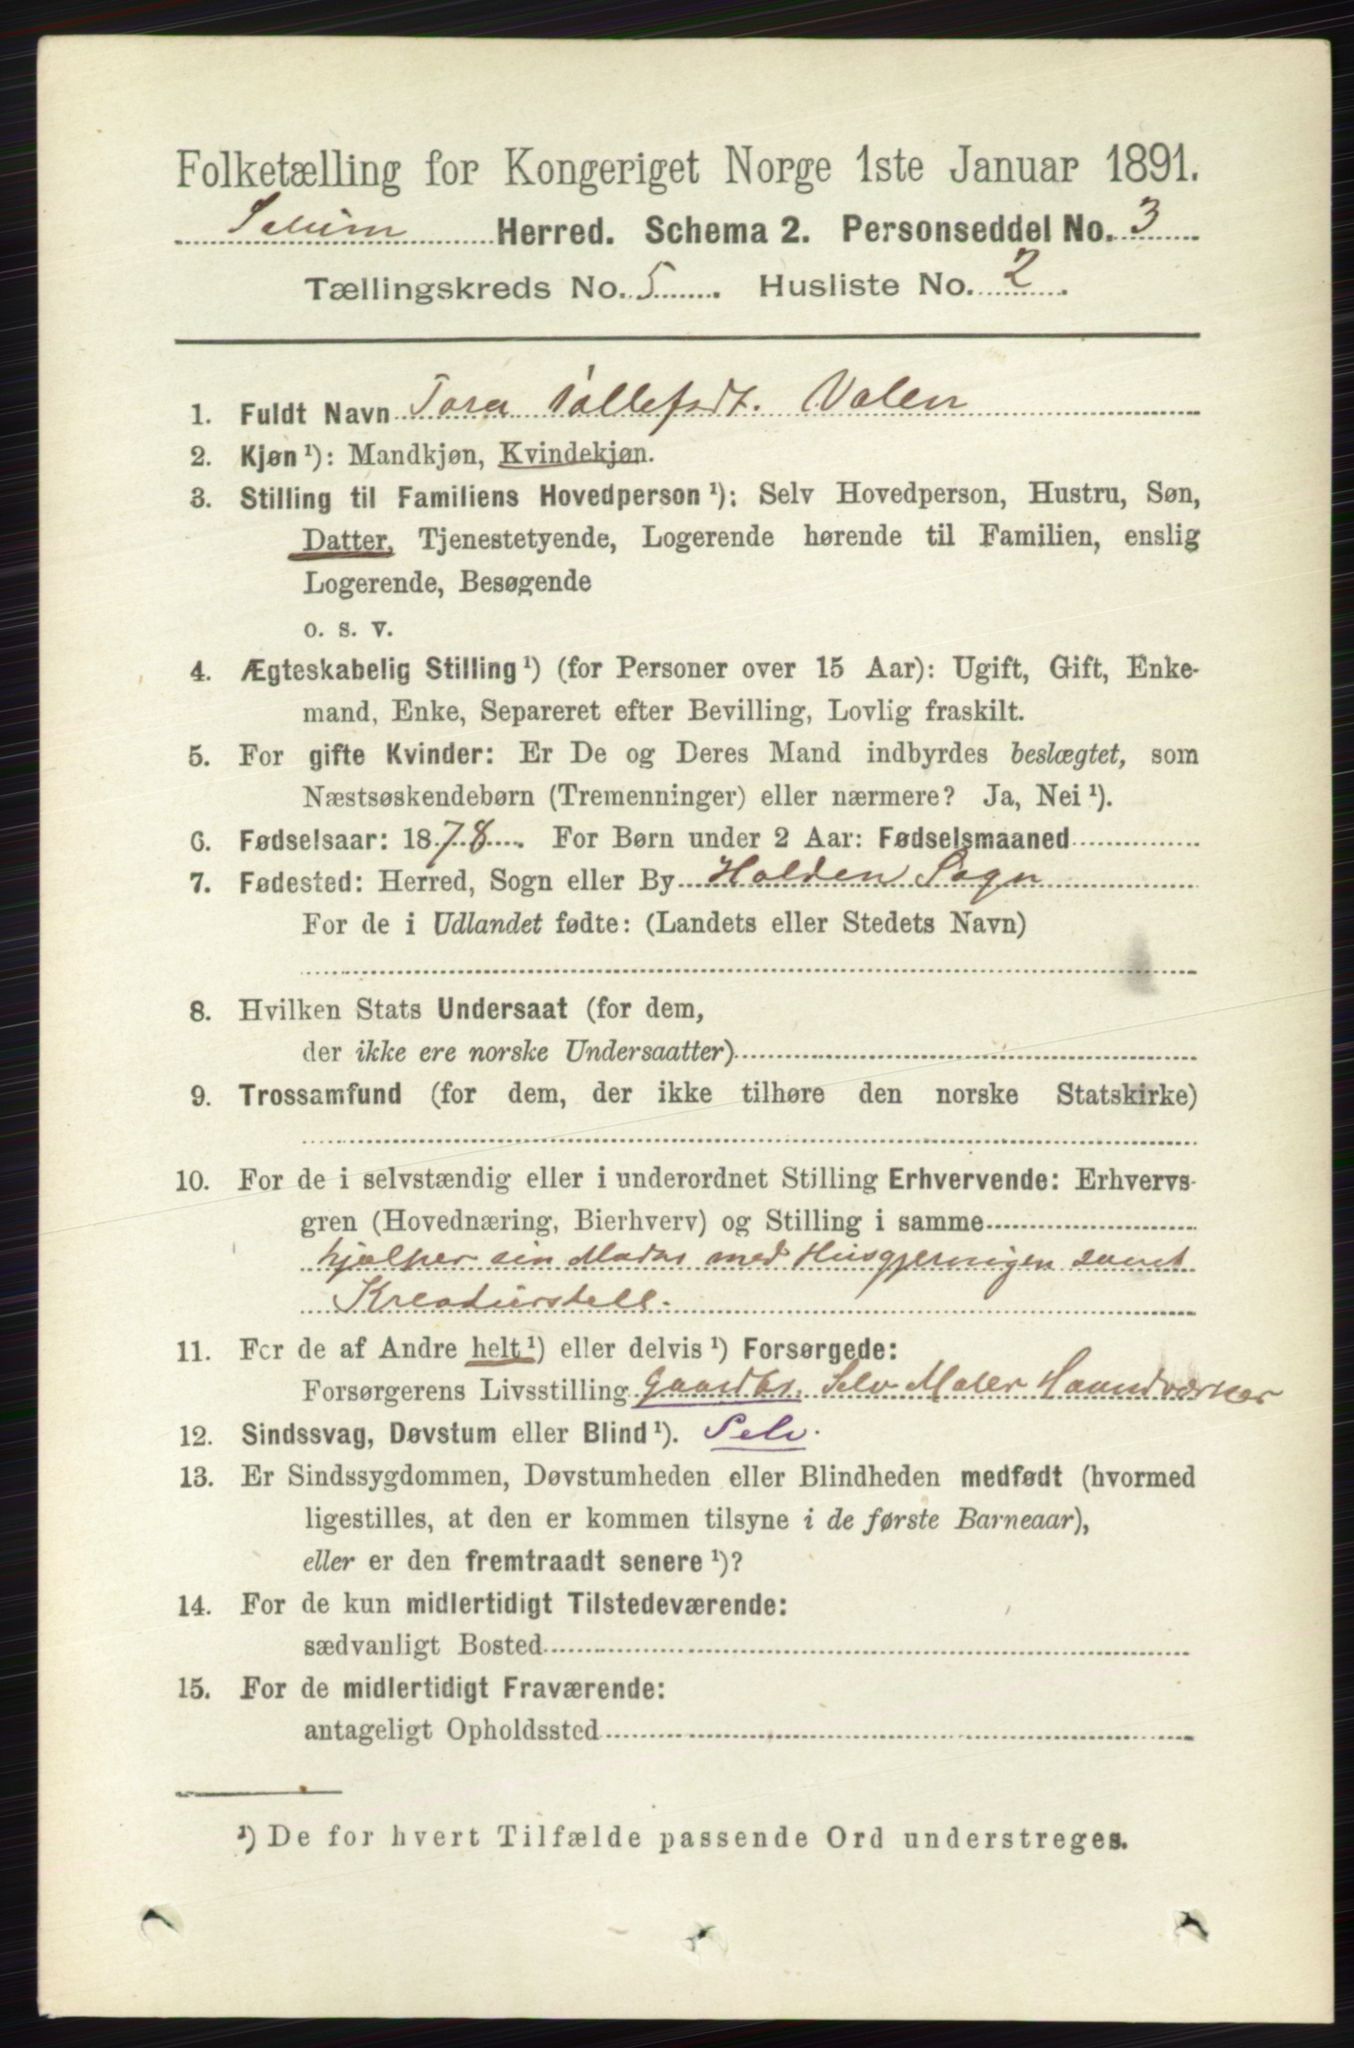 Folketælling for Kongeriget Norge 1ste Januar 1891.
Herred. Schema 2. Personseddel No. 3
Tællingskreds No. 5. Husliste No. 2.
1. Fuldt Navn Tora Tollefsdt. Valen
2. Kjøn ¹): Mandkjøn, Kvindekjøn.
3. Stilling til Familiens Hovedperson ¹): Selv Hovedperson, Hustru, Søn,
Datter, Tjenestetyende, Logerende hørende til Familien, enslig
Logerende, Besøgende
o. s. v.
4. Ægteskabelig Stilling ¹) (for Personer over 15 Aar): Ugift, Gift, Enke-
mand, Enke, Separeret efter Bevilling, Lovlig fraskilt.
5. For gifte Kvinder: Er De og Deres Mand indbyrdes beslægtet, som
Næstsøskendebørn (Tremenninger) eller nærmere? Ja, Nei ¹).
6. Fødselsaar: 1878. For Børn under 2 Aar: Fødselsmaaned
7. Fødested: Herred, Sogn eller By Holden Sogn
For de i Udlandet fødte: (Landets eller Stedets Navn)
8. Hvilken Stats Undersaat (for dem,
der ikke ere norske Undersaatter)
9. Trossamfund (for dem, der ikke tilhøre den norske Statskirke)
10. For de i selvstændig eller i underordnet Stilling Erhvervende: Erhvervs-
gren (Hovednæring, Bierhverv) og Stilling i samme
hjælper sin Moder med Husgjerningen samt
Kreaturstell.
11. For de af Andre helt ¹) eller delvis ¹) Forsørgede:
Forsørgerens Livsstilling Gaardbr. Selv Maler Haandværker
12. Sindssvag, Døvstum eller Blind ¹). Selv.
13. Er Sindssygdommen, Døvstumheden eller Blindheden medfødt (hvormed
ligestilles, at den er kommen tilsyne i de første Barneaar),
eller er den fremtraadt senere ¹)?
14. For de kun midlertidigt Tilstedeværende:
sædvanligt Bosted
15. For de midlertidigt Fraværende:
antageligt Opholdssted
¹) De for hvert Tilfælde passende Ord understreges.